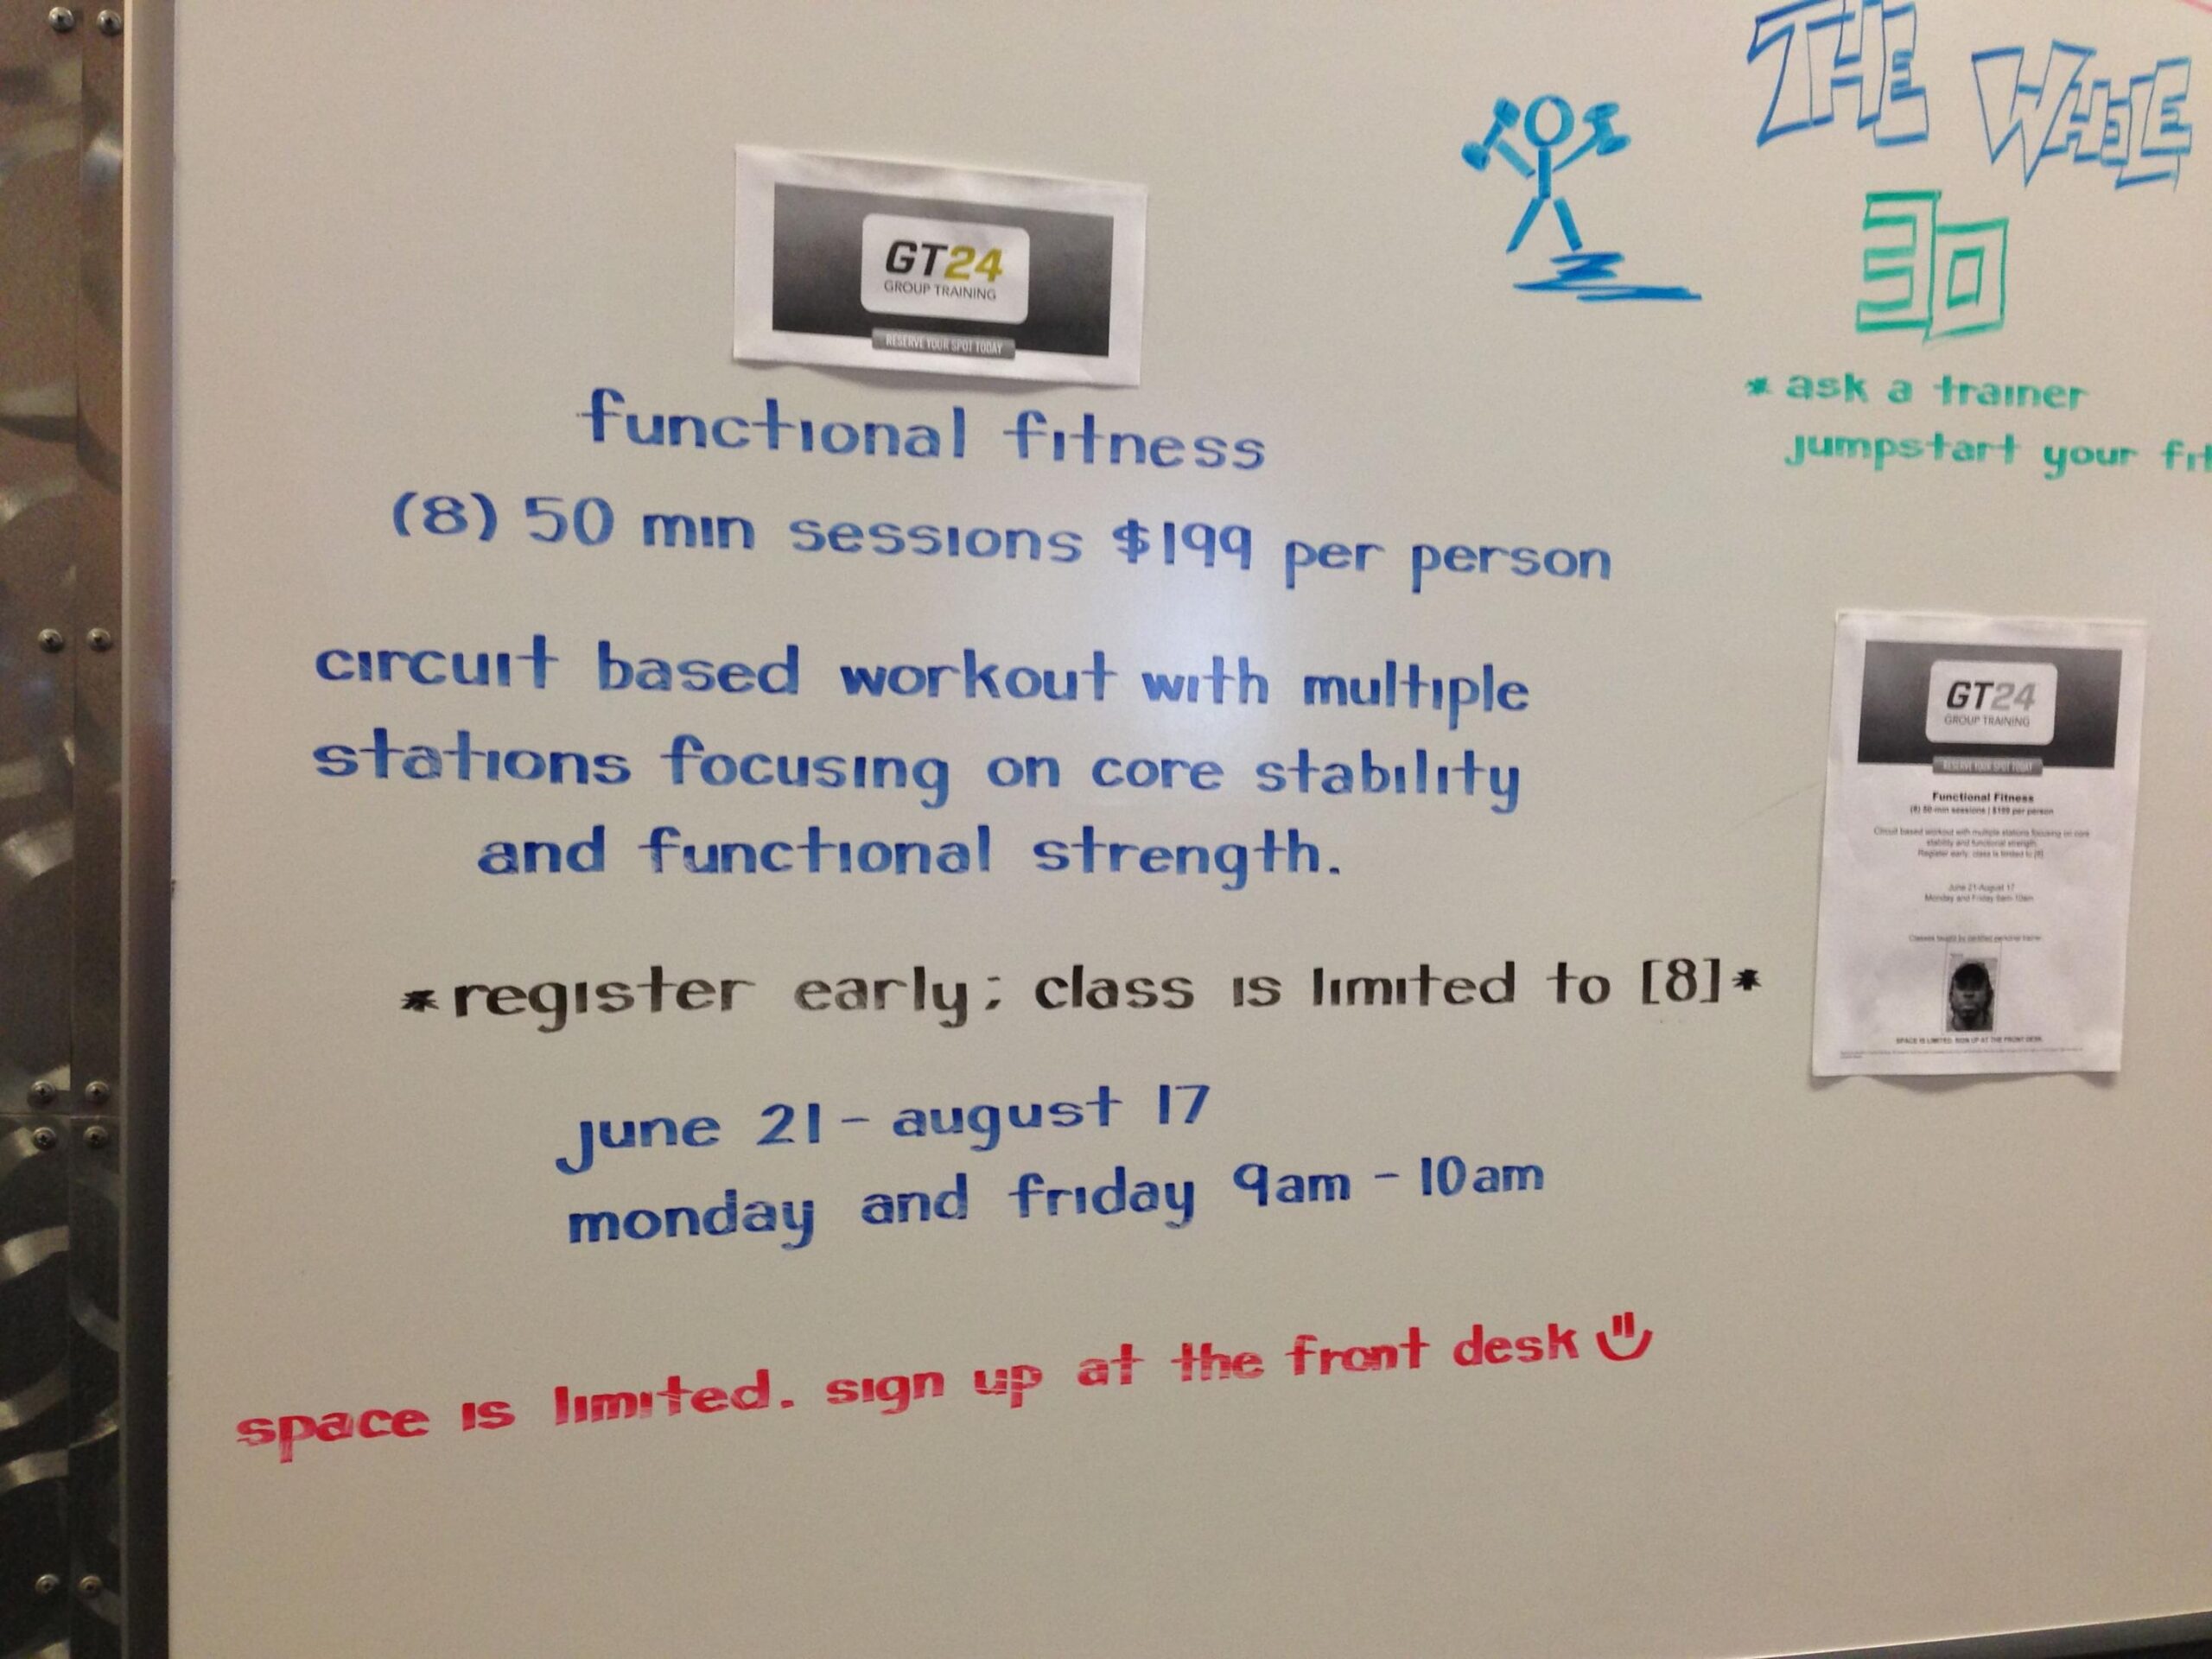 GT24
GROUP TRAINING
RESERVE YOUR SPOT TODAY
functional fitness
(8) 50 min sessions $199 per person
circuit based workout with multiple
stations focusing on core stability
and functional strength.
*register early; class is limited to [8]*
june 21 - august 17
monday and friday 9am - 10am
space is limited. sign up at the front desk
THE WHOLE
30
* ask a trainer
jumpstart your fit
GT24
GROUP TRAINING
RESERVE YOUR SPOT TODAY
Functional Fitness
(8) 50 min sessions | $199 per person
Circuit based workout with multiple stations focusing on core
stability and functional strength.
Register early; class is limited to [8]
June 21-August 17
Monday and Friday 9am-10am
Classes taught by certified personal trainer
SPACE IS LIMITED. SIGN UP AT THE FRONT DESK.